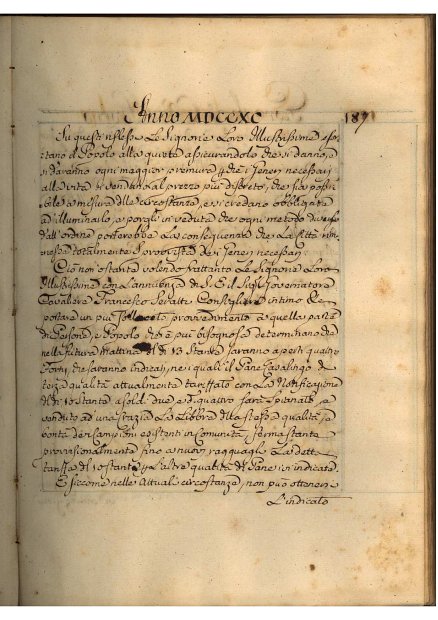 Anno MDCCXC 187
Su questi riflessi Le Signorie Loro Illustrissime esor
tano il Popolo alla quiete assicurandolo che si danno, e
si daranno ogni maggior premura, che i generi necessarj
alla vita si vendino al prezzo più discreto, che sia possi
bile a misura delle circostanze, e si credano obbligate
ad illuminarlo, e porgli in veduta che ogni metodo diverso
dall'ordine porterebbe la conseguenza che la Città rim
nesse totalmente sprovvista de' generi necessarj.
Ciò non ostante volendo frattanto Le Signorie Loro
Illustrissime con l'annuenza di S. E. il Sig. Governatore
Cavaliere Francesco Seratti Consigliere intimo
portare un più sollecito provvedimento a quella parte
di Persone, e Popolo che è più bisognosa determinano che
nella futura Mattina del dì 13 Stante saranno aperti quattro
Forni, che saranno indicati, ne i quali il Pane Casalingo di
terza qualità attualmente tariffato con La Notificazione
del dì 10 Stante a soldi due e di quattro sarà spianato, e
venduto ad una Crazia La Libbra della stessa qualità, e
bontà de Campioni esistenti in Comunità, ferma stante
provvisionalmente fino a nuovi ragguagli La detta
tariffa del 10 stante l'altre qualità di Pane ivi indicate.
E siccome nelle attuali circostanze, non può ottenersi
L'indicato